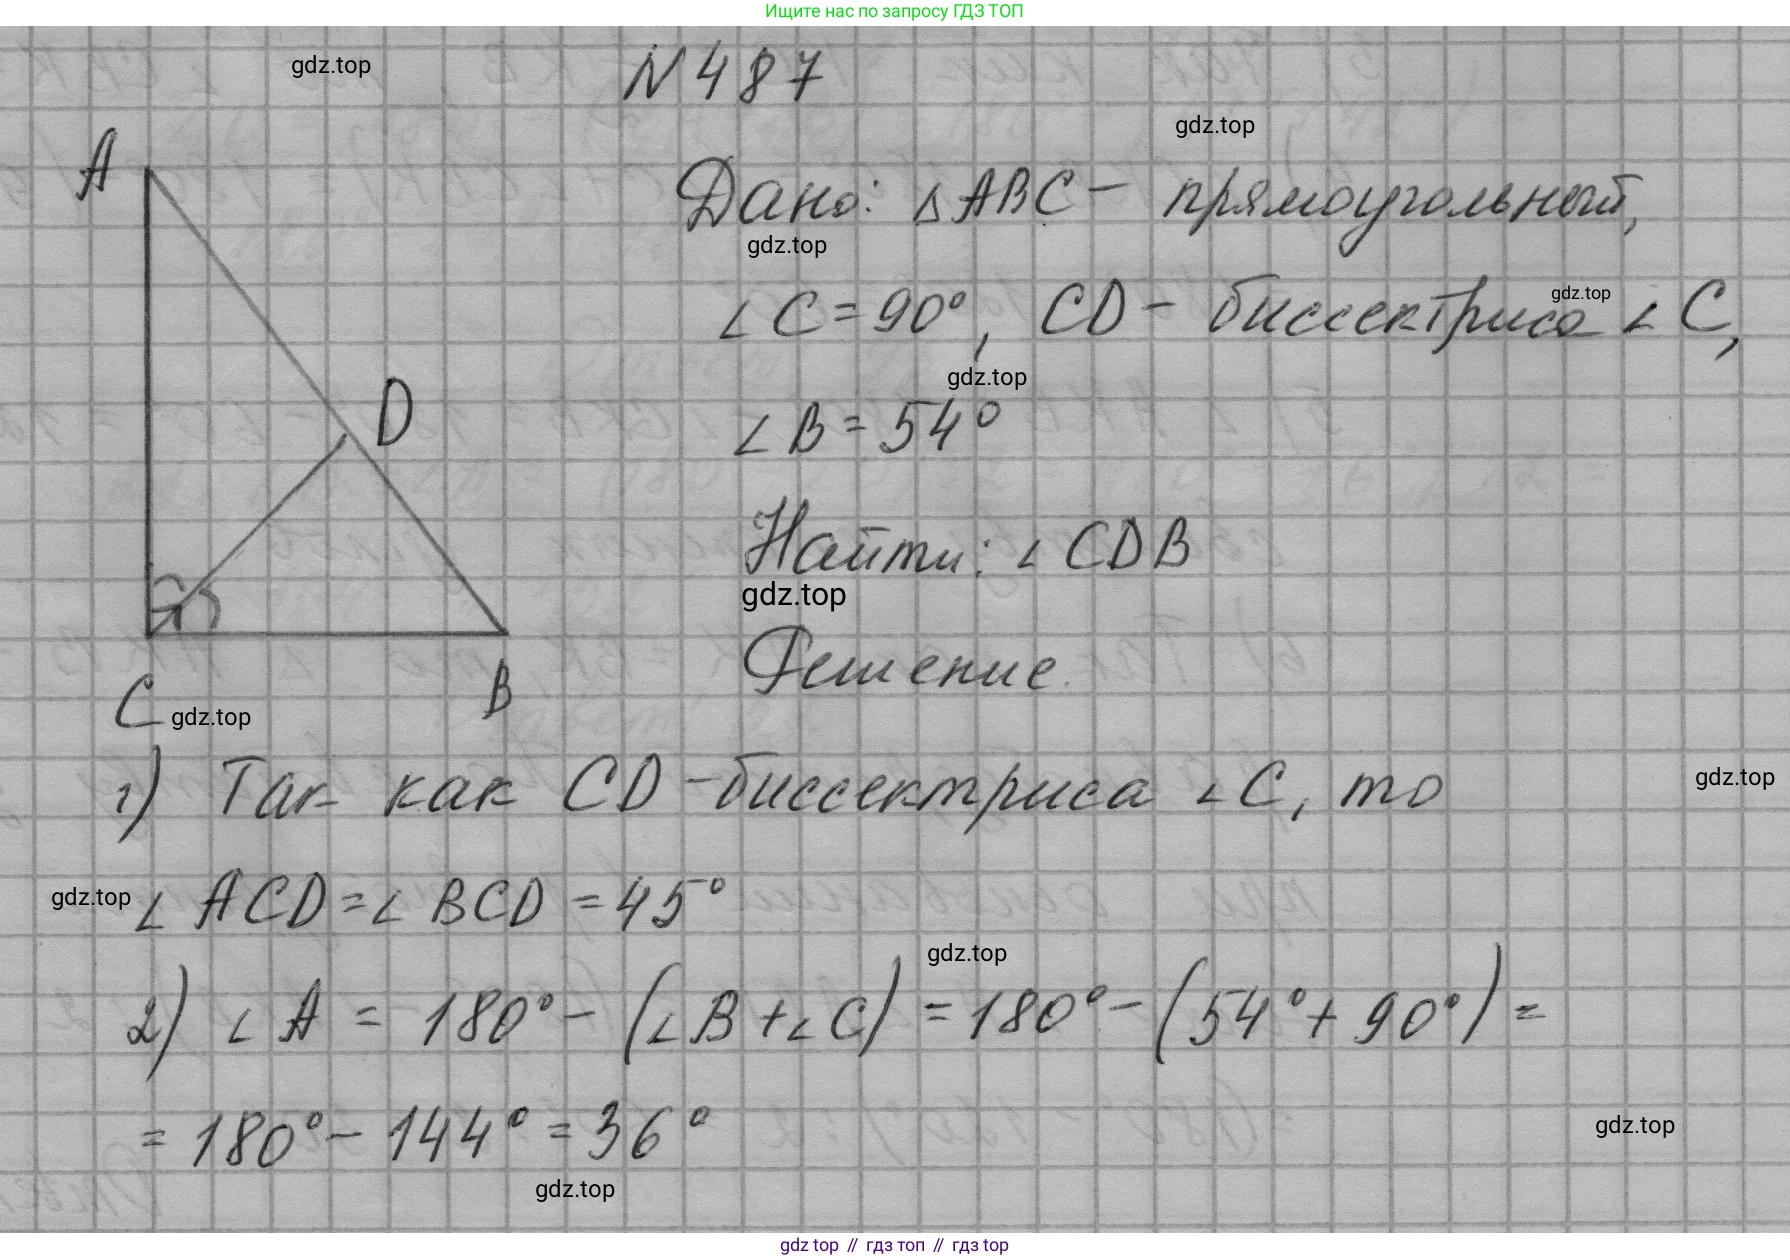 Ищите нас по запросу ГДЗ ТОП
gdz.top
N 487
gdz.top
A
Дано: △ABC - прямоугольный,
gdz.top
∠C = 90°, CD - биссектриса ∠C,
gdz.top
gdz.top
D
∠B = 54°
Найти: ∠CDB
gdz.top
Решение.
C
B
gdz.top
1) Так как CD - биссектриса ∠C, то
gdz.top
gdz.top
∠ACD = ∠BCD = 45°
gdz.top
2) ∠A = 180° - (∠B + ∠C) = 180° - (54° + 90°) =
= 180° - 144° = 36°
gdz.top
gdz.top
gdz top // гдз топ // гдз top